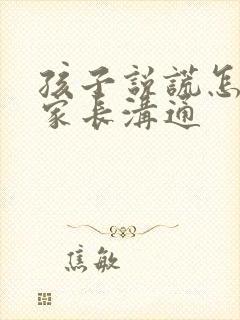 孩子説謊怎
家長溝通
焦敏